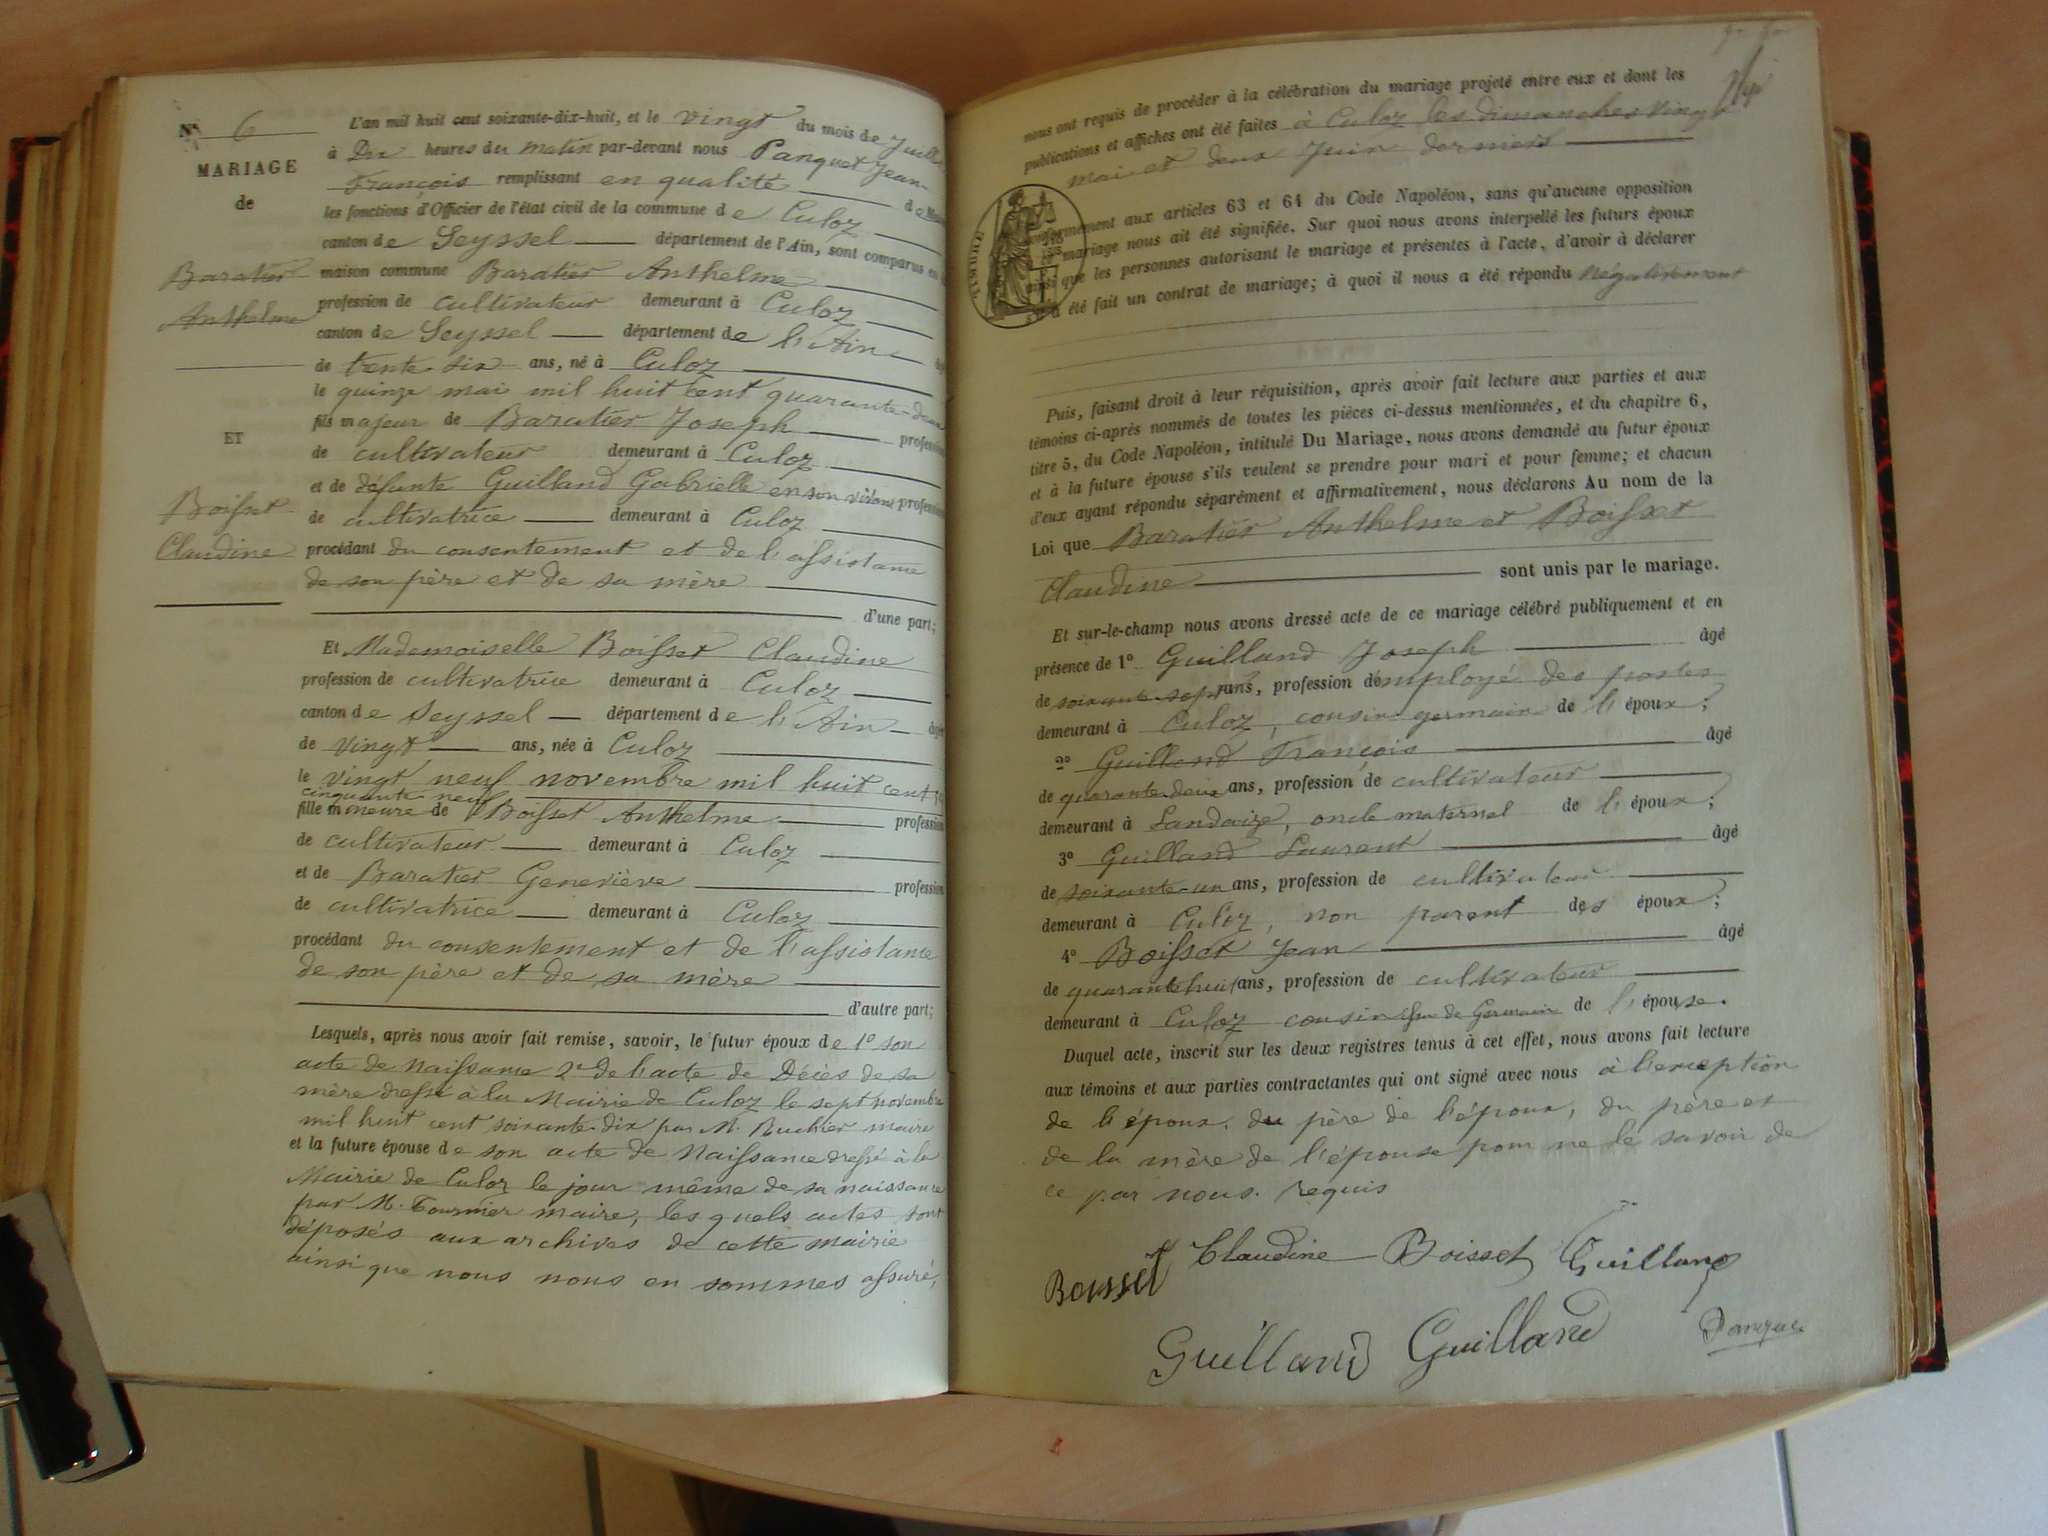 N° 6
MARIAGE
de
Baratier
Anthelme
ET
Boisset
Claudine
L'an mil huit cent soixante-dix-huit, et le vingt du mois de Juill
à Dix heures du matin par-devant nous Panquet Jean-
François remplissant en qualité de
les fonctions d'Officier de l'état civil de la commune de Culoz
canton de Seyssel département de l'Ain, sont comparus en
maison commune Baratier Anthelme
profession de cultivateur demeurant à Culoz
canton de Seyssel département de l'Ain
de trente six ans, né à Culoz
le quinze mai mil huit cent quarante-deux
fils majeur de Baratier Joseph profession
de cultivateur demeurant à Culoz
et de défunte Guilland Gabrielle en son vivant profession
de cultivatrice demeurant à Culoz
procédant du consentement et de l'assistance
de son père et de sa mère
d'une part;
Et Mademoiselle Boisset Claudine
profession de cultivatrice demeurant à Culoz
canton de Seyssel département de l'Ain âgée
de vingt ans, née à Culoz
le vingt neuf novembre mil huit cent
cinquante neuf
fille mineure de Boisset Anthelme profession
de cultivateur demeurant à Culoz
et de Baratier Geneviève profession
de cultivatrice demeurant à Culoz
procédant du consentement et de l'assistance
de son père et de sa mère
d'autre part;
Lesquels, après nous avoir fait remise, savoir, le futur époux de 1° son
acte de Naissance 2° de l'acte de Décès de sa
mère dressé à la Mairie de Culoz le sept novembre
mil huit cent soixante-dix par M. Ruchier maire
et la future épouse de son acte de Naissance dressé à la
Mairie de Culoz le jour même de sa naissance
par M. Fournier maire, les quels actes sont
déposés aux archives de cette mairie
ainsi que nous nous en sommes assuré,
nous ont requis de procéder à la célébration du mariage projeté entre eux et dont les
publications et affiches ont été faites à Culoz les dimanches vingt
mai et deux Juin derniers
TIMBRE
conformément aux articles 63 et 64 du Code Napoléon, sans qu'aucune opposition
mariage nous ait été signifiée. Sur quoi nous avons interpellé les futurs époux
ainsi que les personnes autorisant le mariage et présentes à l'acte, d'avoir à déclarer
s'il a été fait un contrat de mariage; à quoi il nous a été répondu négativement
Puis, faisant droit à leur réquisition, après avoir fait lecture aux parties et aux
témoins ci-après nommés de toutes les pièces ci-dessus mentionnées, et du chapitre 6,
titre 5, du Code Napoléon, intitulé Du Mariage, nous avons demandé au futur époux
et à la future épouse s'ils veulent se prendre pour mari et pour femme; et chacun
d'eux ayant répondu séparément et affirmativement, nous déclarons Au nom de la
Loi que Baratier Anthelme et Boisset
Claudine sont unis par le mariage.
Et sur-le-champ nous avons dressé acte de ce mariage célébré publiquement et en
présence de 1° Guilland Joseph âgé
de soixante-sept ans, profession d'employé des postes
demeurant à Culoz, cousin germain de l'époux;
2° Guilland François âgé
de quarante-deux ans, profession de cultivateur
demeurant à Landaize, oncle maternel de l'époux;
3° Guilland Laurent âgé
de soixante-un ans, profession de cultivateur
demeurant à Culoz, non parent des époux;
4° Boisset Jean âgé
de quarante huit ans, profession de cultivateur
demeurant à Culoz cousin issu de Germain de l'épouse.
Duquel acte, inscrit sur les deux registres tenus à cet effet, nous avons fait lecture
aux témoins et aux parties contractantes qui ont signé avec nous à l'exception
de l'époux, du père de l'époux, du père et
de la mère de l'épouse pour ne le savoir de
ce par nous requis
Boisset Claudine Boisset Guilland
Guilland Guilland Panquet